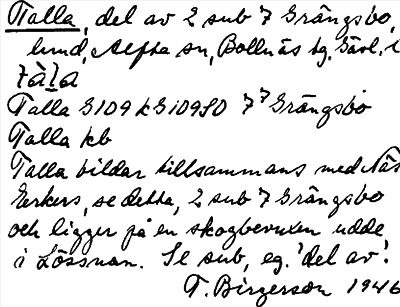 Talla, del av 2 sub 7 Grängsbo,
lund, Alfta sn, Bollnäs tg, Gävl. l
tàla
Talla S109 k S109 SO 7⁷ Grängsbo
Talla kb
Talla bildar tillsammans med Näs
Erkers, se detta, 2 sub 7 Grängsbo
och ligger på en skogbevuxen udde
i Lössnan. Se sub, eg. 'del av'.
T. Birgerson 1946